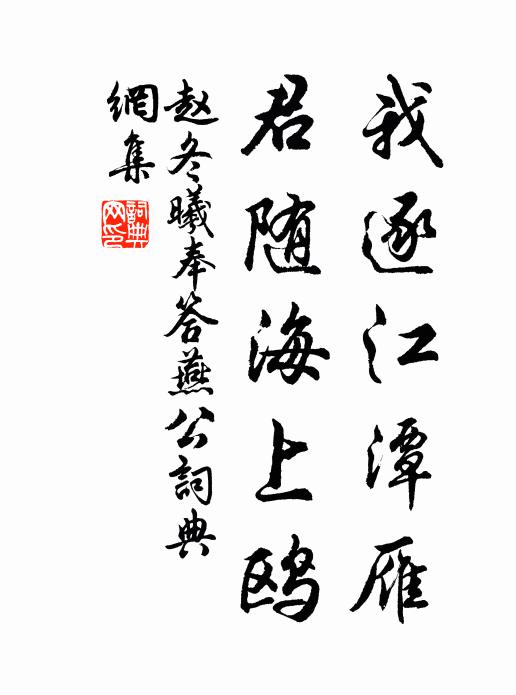 我逐江潭雁
君随海上鸥
赵冬曦奉答燕公詞典
網集
詞典
网印